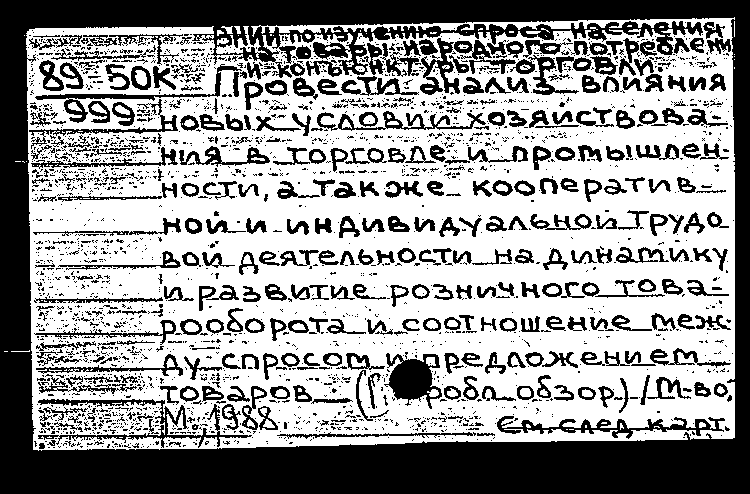 ВНИИ по изучению спроса населения
на товары народного потреблени
и конъюнктуры торговли.
89-50К
999
Провести анализ влияния
новых условий хозяйствова-
ния в торговле и промышлен-
ности, а также кооператив-
ной и индивидуальной трудо
вой деятельности на динамику
и развитие розничного това-
рооборота и соотношение меж-
ду спросом и предложением
товаров. обзор) / М-во,
М., 1988.
См. след. карт.